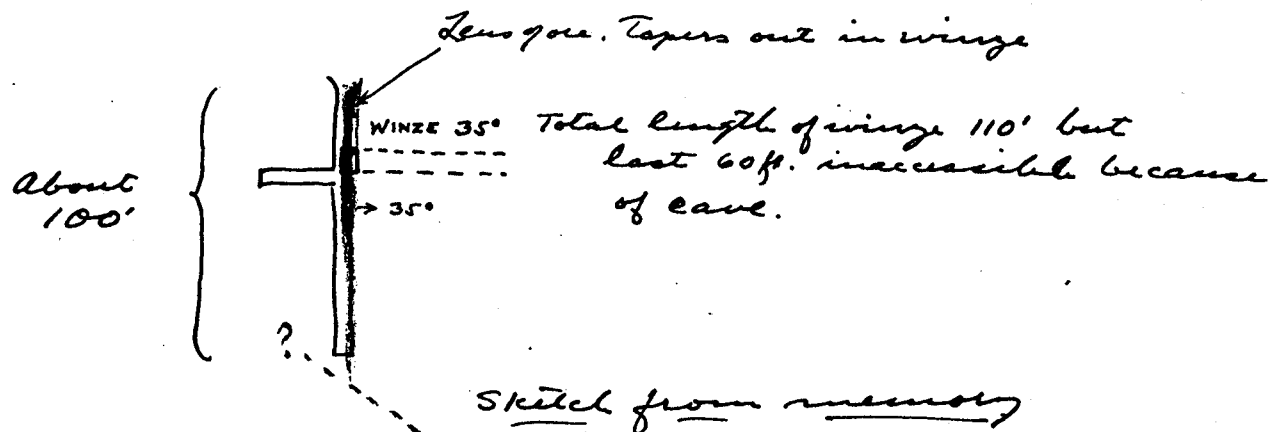 Lens ore. Tapers out in winze
WINZE 35° Total length of winze 110' but
last 60 ft. inaccessible because
of cave.
About
100'
35°
?
Sketch from memory